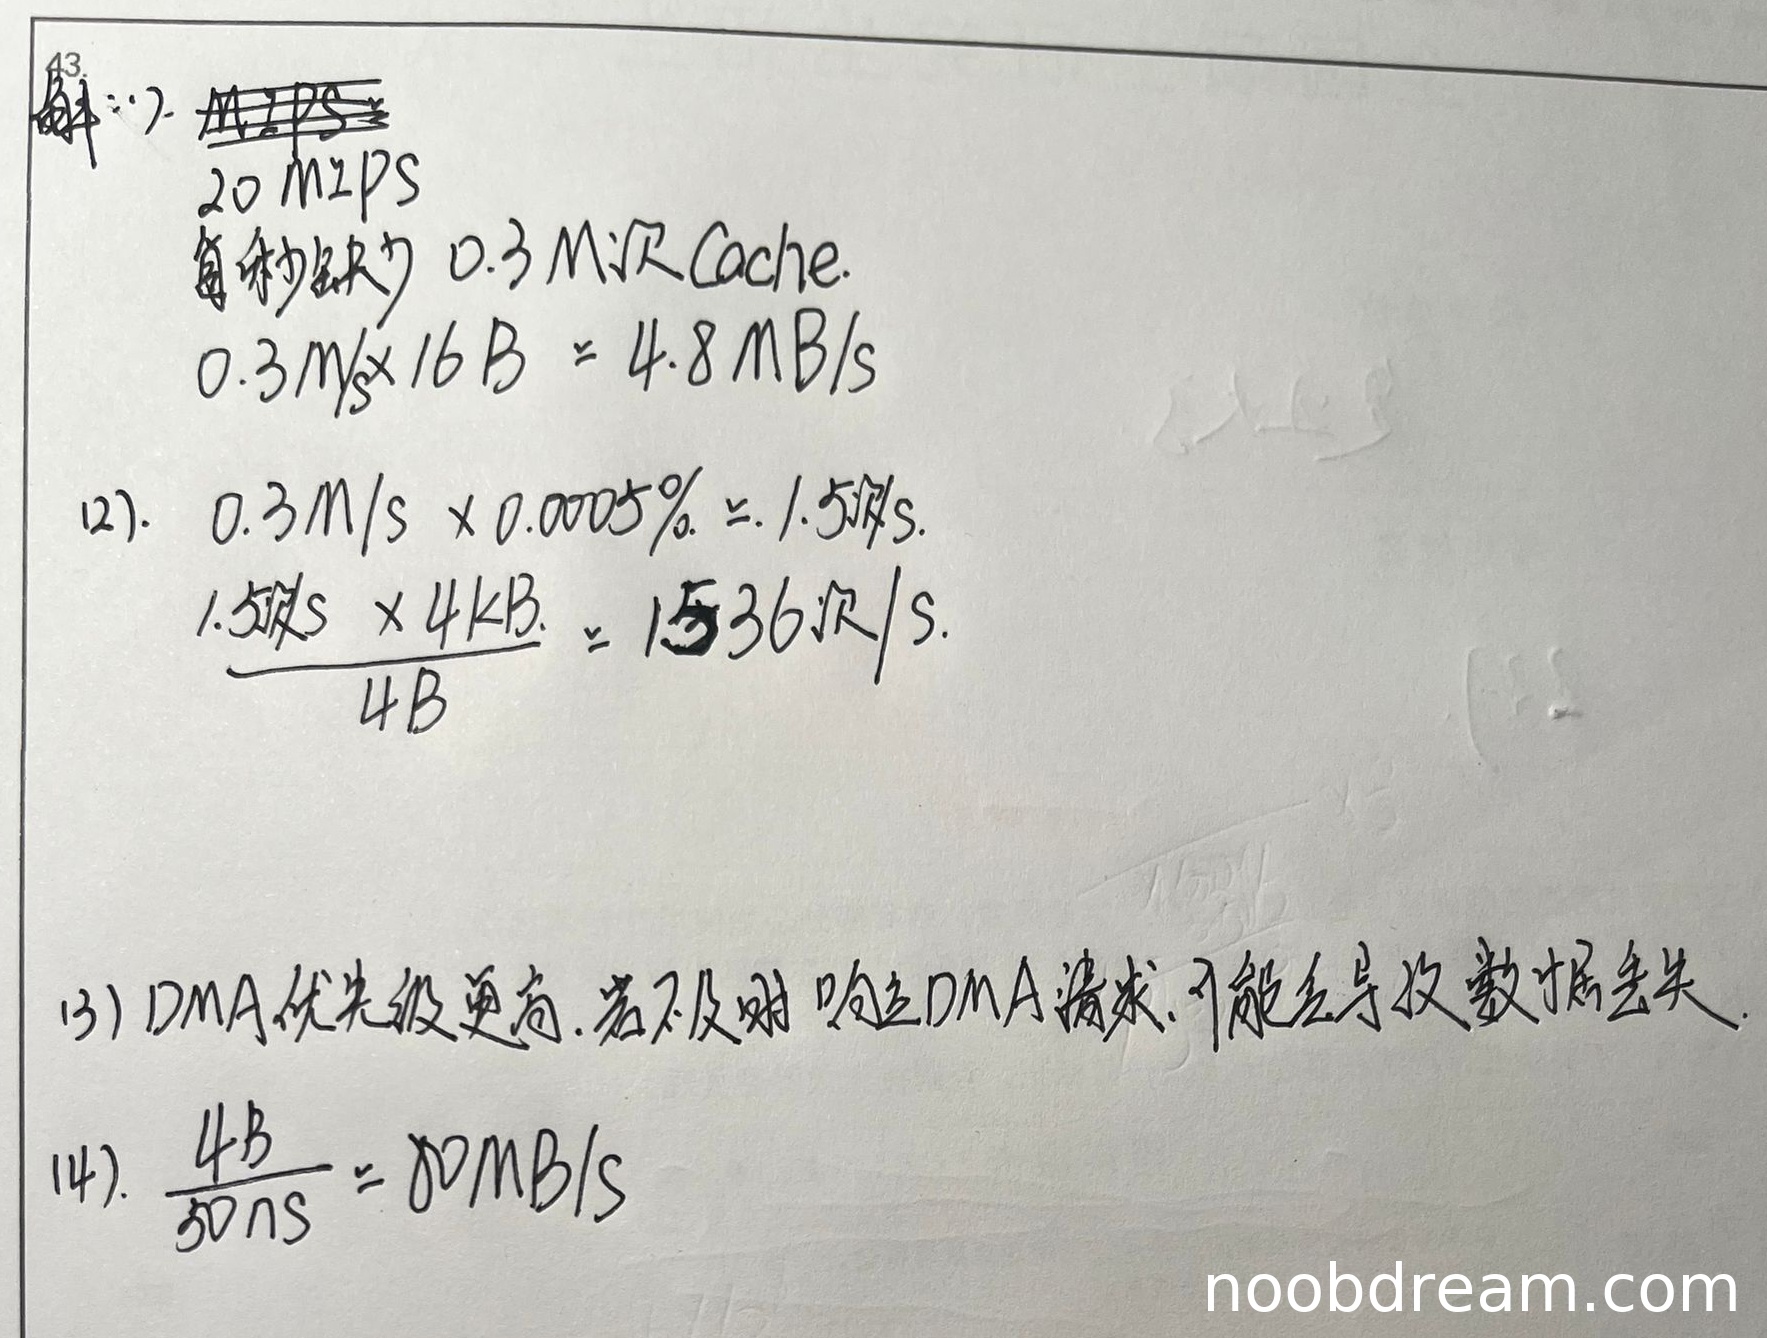 43.
解:(1).
20 MIPS
每秒缺少 0.3 M次 Cache.
0.3M/s×16B = 4.8MB/s
(2). 0.3M/s × 0.0005% = 1.5次/s.
1.5次/s × 4KB.
4B
= 1536次/s.
(3) DMA优先级更高.若不及时响应DMA请求,可能会导致数据丢失.
(4). 4B
50ns
= 80MB/s
noobdream.com